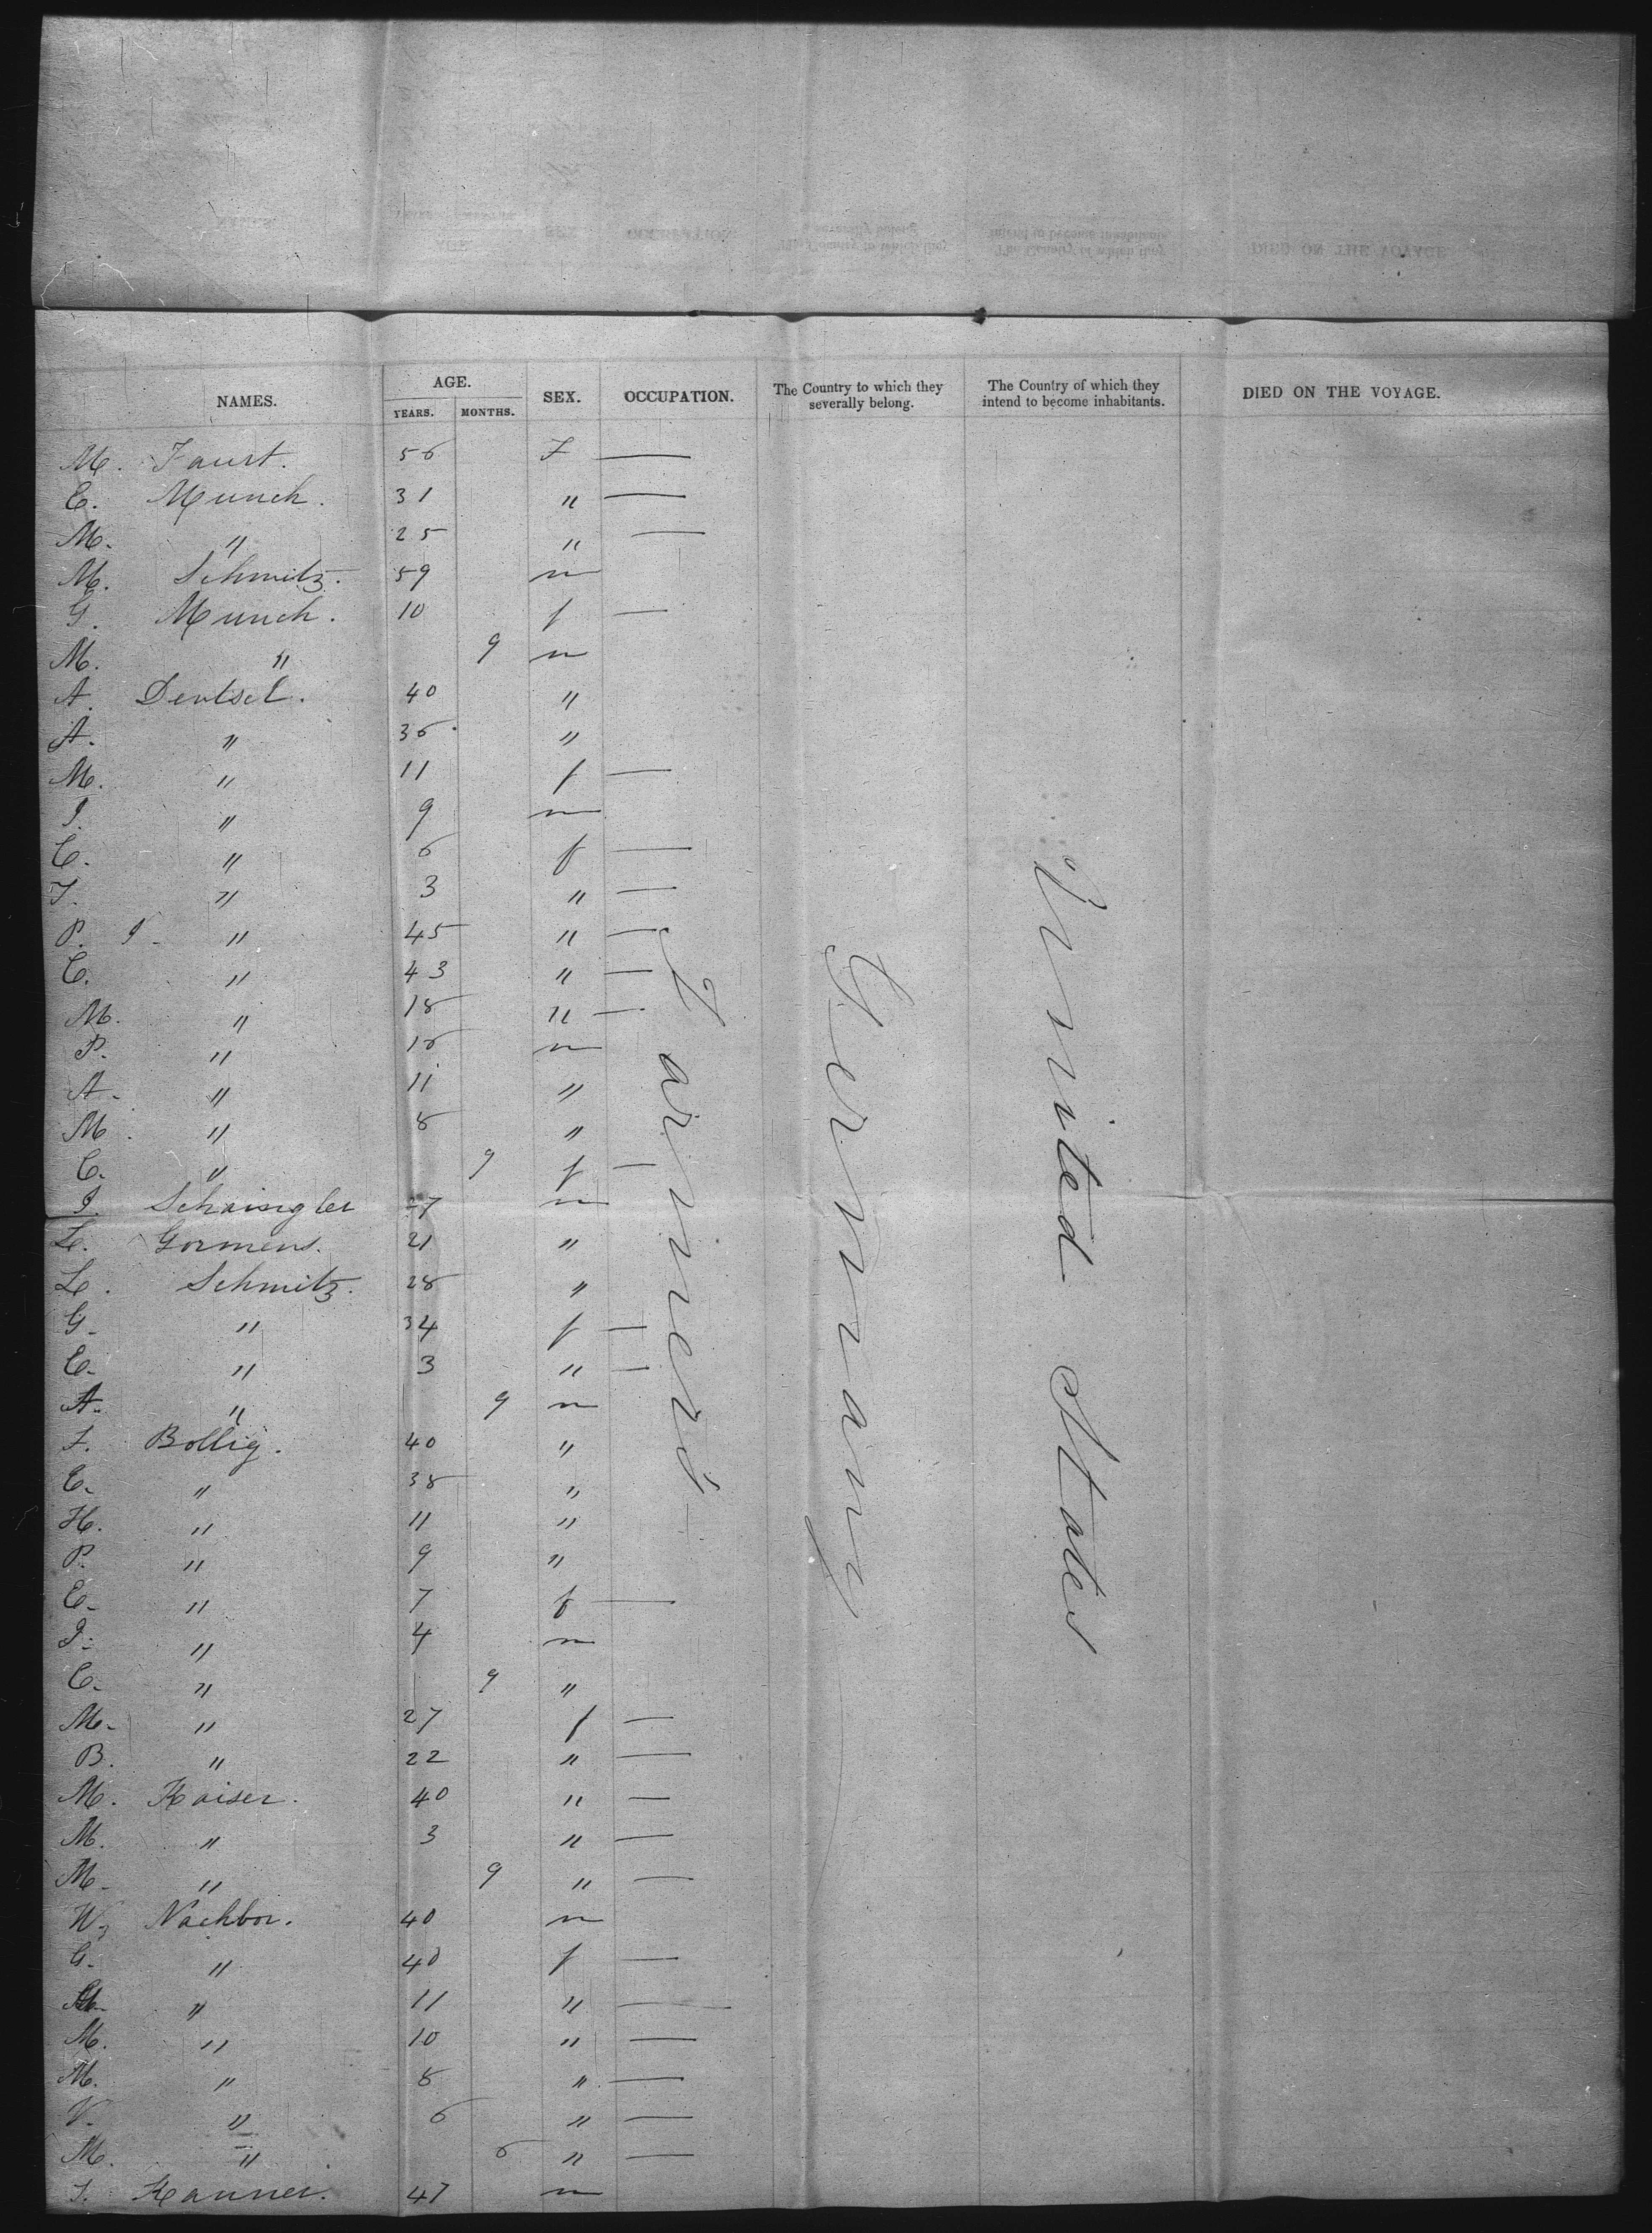 NAMES. AGE. YEARS. MONTHS. SEX. OCCUPATION. The Country to which they severally belong. The Country of which they intend to become inhabitants. DIED ON THE VOYAGE.
M. Faust. 56 F —
C. Munch. 31 " —
M. " 25 " —
M. Schmitz. 59 m
G. Munch. 10 f —
M. " 9 m
A. Dentsel. 40 "
A. " 36 "
M. " 11 f —
J. " 9 m
C. " 6 f —
F. " 3 " —
P. J. " 45 " —
C. " 43 " —
M. " 18 " —
P. " 16 m
A. " 11 "
M. " 8 "
C. " 9 f —
J. 27 m
L. Gormens. 21 "
L. Schmitz. 28 "
G. " 34 f —
E. " 3 " —
A. " 9 m
F. Bollig. 40 "
E. " 38 "
H. " 11 "
P. " 9 "
E. " 7 f —
J. " 4 m
C. " 9 "
M. " 27 f —
B. " 22 " —
M. Kaiser. 40 " —
M. " 3 " —
M. " 9 " —
W. Nachbor. 40 m
G. " 40 f —
" 11 " —
M. " 10 " —
M. " 8 " —
V. " 6 " —
M. " 6 " —
J. Kanner. 47 m
Farmers
Germany
United States